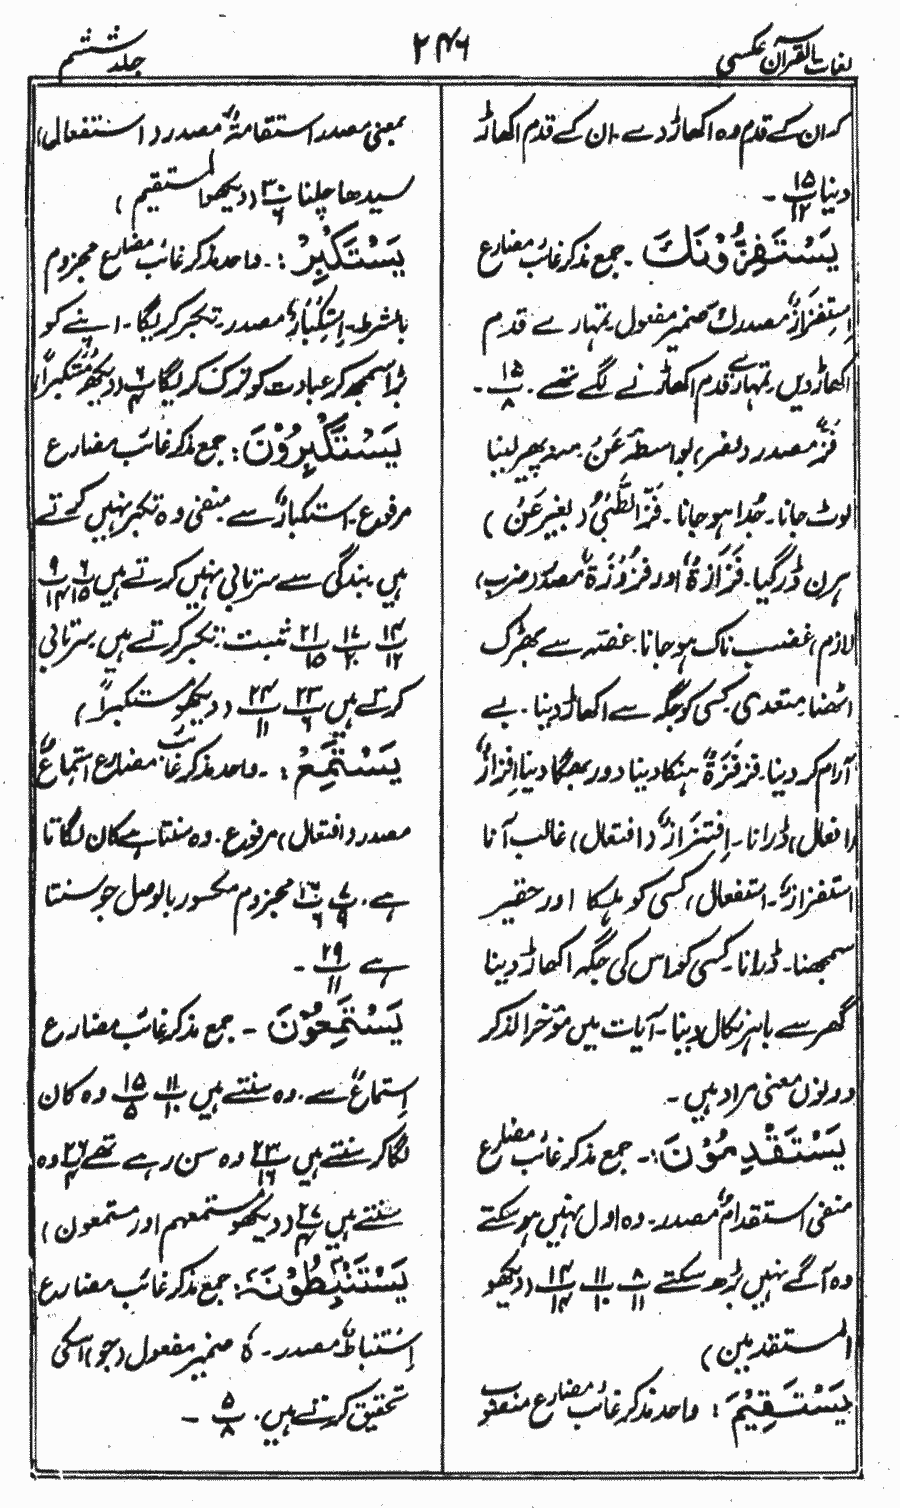 لغات القرآن عکسی
۲۴۶
جلد ششم
کہ ان کے قدم وہ اکھاڑ دے ۔ ان کے قدم اکھاڑ
دینا ۱۵/۱۲ ۔
يَسْتَفِزُّوْنَكَ ۔ جمع مذکر غائب مضارع
اِسْتِفْزَازٌ مصدر كَ ضمیر مفعول ۔ تمہارے قدم
اکھاڑ دیں ۔ تمہارے قدم اکھاڑنے لگے تھے ۔ ۱۵/۸ ۔
فَزٌّ مصدر (نصر) بواسطہ عَنْ ۔ منہ پھیر لینا
لوٹ جانا ۔ جُدا ہو جانا ۔ فَزَّ الظَّبْیُ (بغیر عَنْ)
ہرن ڈر گیا ۔ فَزَازَةٌ اور فُزُوْزَةٌ مصدر (ضرب)
لازم) غضب ناک ہو جانا ۔ غصّہ سے بھڑک
اٹھنا ۔ متعدی ۔ کسی کو جگہ سے اکھاڑ دینا ۔ بے
آرام کر دینا ۔ فَزْفَزَةٌ ہنکا دینا دور بھگا دینا اِفْزَازٌ
(افعال) ڈرانا ۔ اِفْتِزَازٌ (افتعال) غالب آنا
استفزازٌ ۔ استفعال) کسی کو ہلکا اور حقیر
سمجھنا ۔ ڈرانا ۔ کسی کو اس کی جگہ اکھاڑ دینا
گھر سے باہر نکال دینا ۔ آیات میں مؤخر الذکر
دونوں معنی مراد ہیں ۔
يَسْتَقْدِمُوْنَ :۔ جمع مذکر غائب مضارع
منفی استقدامٌ مصدر ۔ وہ اول نہیں ہو سکتے
وہ آگے نہیں بڑھ سکتے ۸/۱۱ ۱۱/۱۰ ۱۴/۱۴ (دیکھو
المستقدمین)
يَسْتَقِيْمَ : واحد مذکر غائب مضارع منصوب
بمعنی مصدر استقامةٌ مصدر (استفعال)
سیدھا چلنا ۳۰/۶ (دیکھو المستقیم)
يَسْتَكْبِرْ :۔ واحد مذکر غائب مضارع مجزوم
بالشرط ۔ اِسْتِكْبَارٌ مصدر ۔ تکبر کریگا ۔ اپنے کو
بڑا سمجھ کر عبادت کو ترک کریگا ۶/۴ (دیکھو مُتَكَبِّراً)
يَسْتَكْبِرُوْنَ : جمع مذکر غائب مضارع
مرفوع ۔ استکبارٌ سے ۔ منفی وہ تکبر نہیں کرتے
ہیں ۔ بندگی سے سرتابی نہیں کرتے ہیں ۶/۱۵ ۹/۱۴
۱۴/۱۲ ۱۷/۲۰ ۲۱/۱۵ مثبت : تکبر کرتے ہیں ۔ سرتابی
کرتے ہیں ۲۳/۶ ۲۴/۱۱ (دیکھو مستکبراً)
يَسْتَمِعُ : ۔ واحد مذکر غائب مضارع استماعٌ
مصدر (افتعال) مرفوع ۔ وہ سنتا ہے کان لگاتا
ہے ۔ ۷/۹ ۱۶/۶ مجزوم مکسور بالوصل جو سنتا
ہے ۲۹/۱۱ ۔
يَسْتَمِعُوْنَ ۔ جمع مذکر غائب مضارع
اِستماعٌ سے ۔ وہ سنتے ہیں ۱۱/۱۰ ۱۵/۵ وہ کان
لگا کر سنتے ہیں ۲۳/۱۶ وہ سن رہے تھے ۲۶/۴ وہ
سنتے ہیں ۲۷/۴ (دیکھو مستمعهم اور مستمعون)
يَسْتَنْبِطُوْنَهٗ : جمع مذکر غائب مضارع
اِسْتِنْبَاطٌ مصدر ۔ هٗ ضمیر مفعول (جو) اسکی
تحقیق کرتے ہیں ۔ ۵/۸ ۔